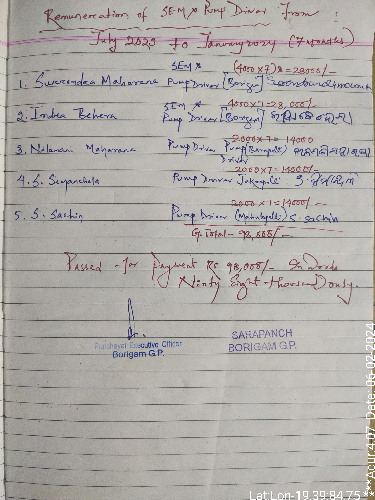 Remuneration of SEM & Pump Driver from :
July 2023 to January 2024 (7 months)
SEM & (4000 x 7) = 28000/-
1. Surendra Maharana Pump Driver [Borigam]
SEM & 4000 x 7 = 28,000/-
2. Indra Behera Pump Driver [Borigam]
2000 x 7 = 14000
3. Maharana Pump Driver Pump
Driver
2000 x 7 = 14000/-
4. S. Pump Driver
2000 x 7 = 14000/-
5. S. Sachin Pump Driver S Sachin
G. Total - 98,000/-
Passed for payment Rs 98,000/- In words
Ninty Eight thousand only.
Panchayat Executive Officer
Borigam G.P.
SARAPANCH
BORIGAM G.P.
Lat Lon-19.39:84.75***Acur:4.07 Date:06-02-2024